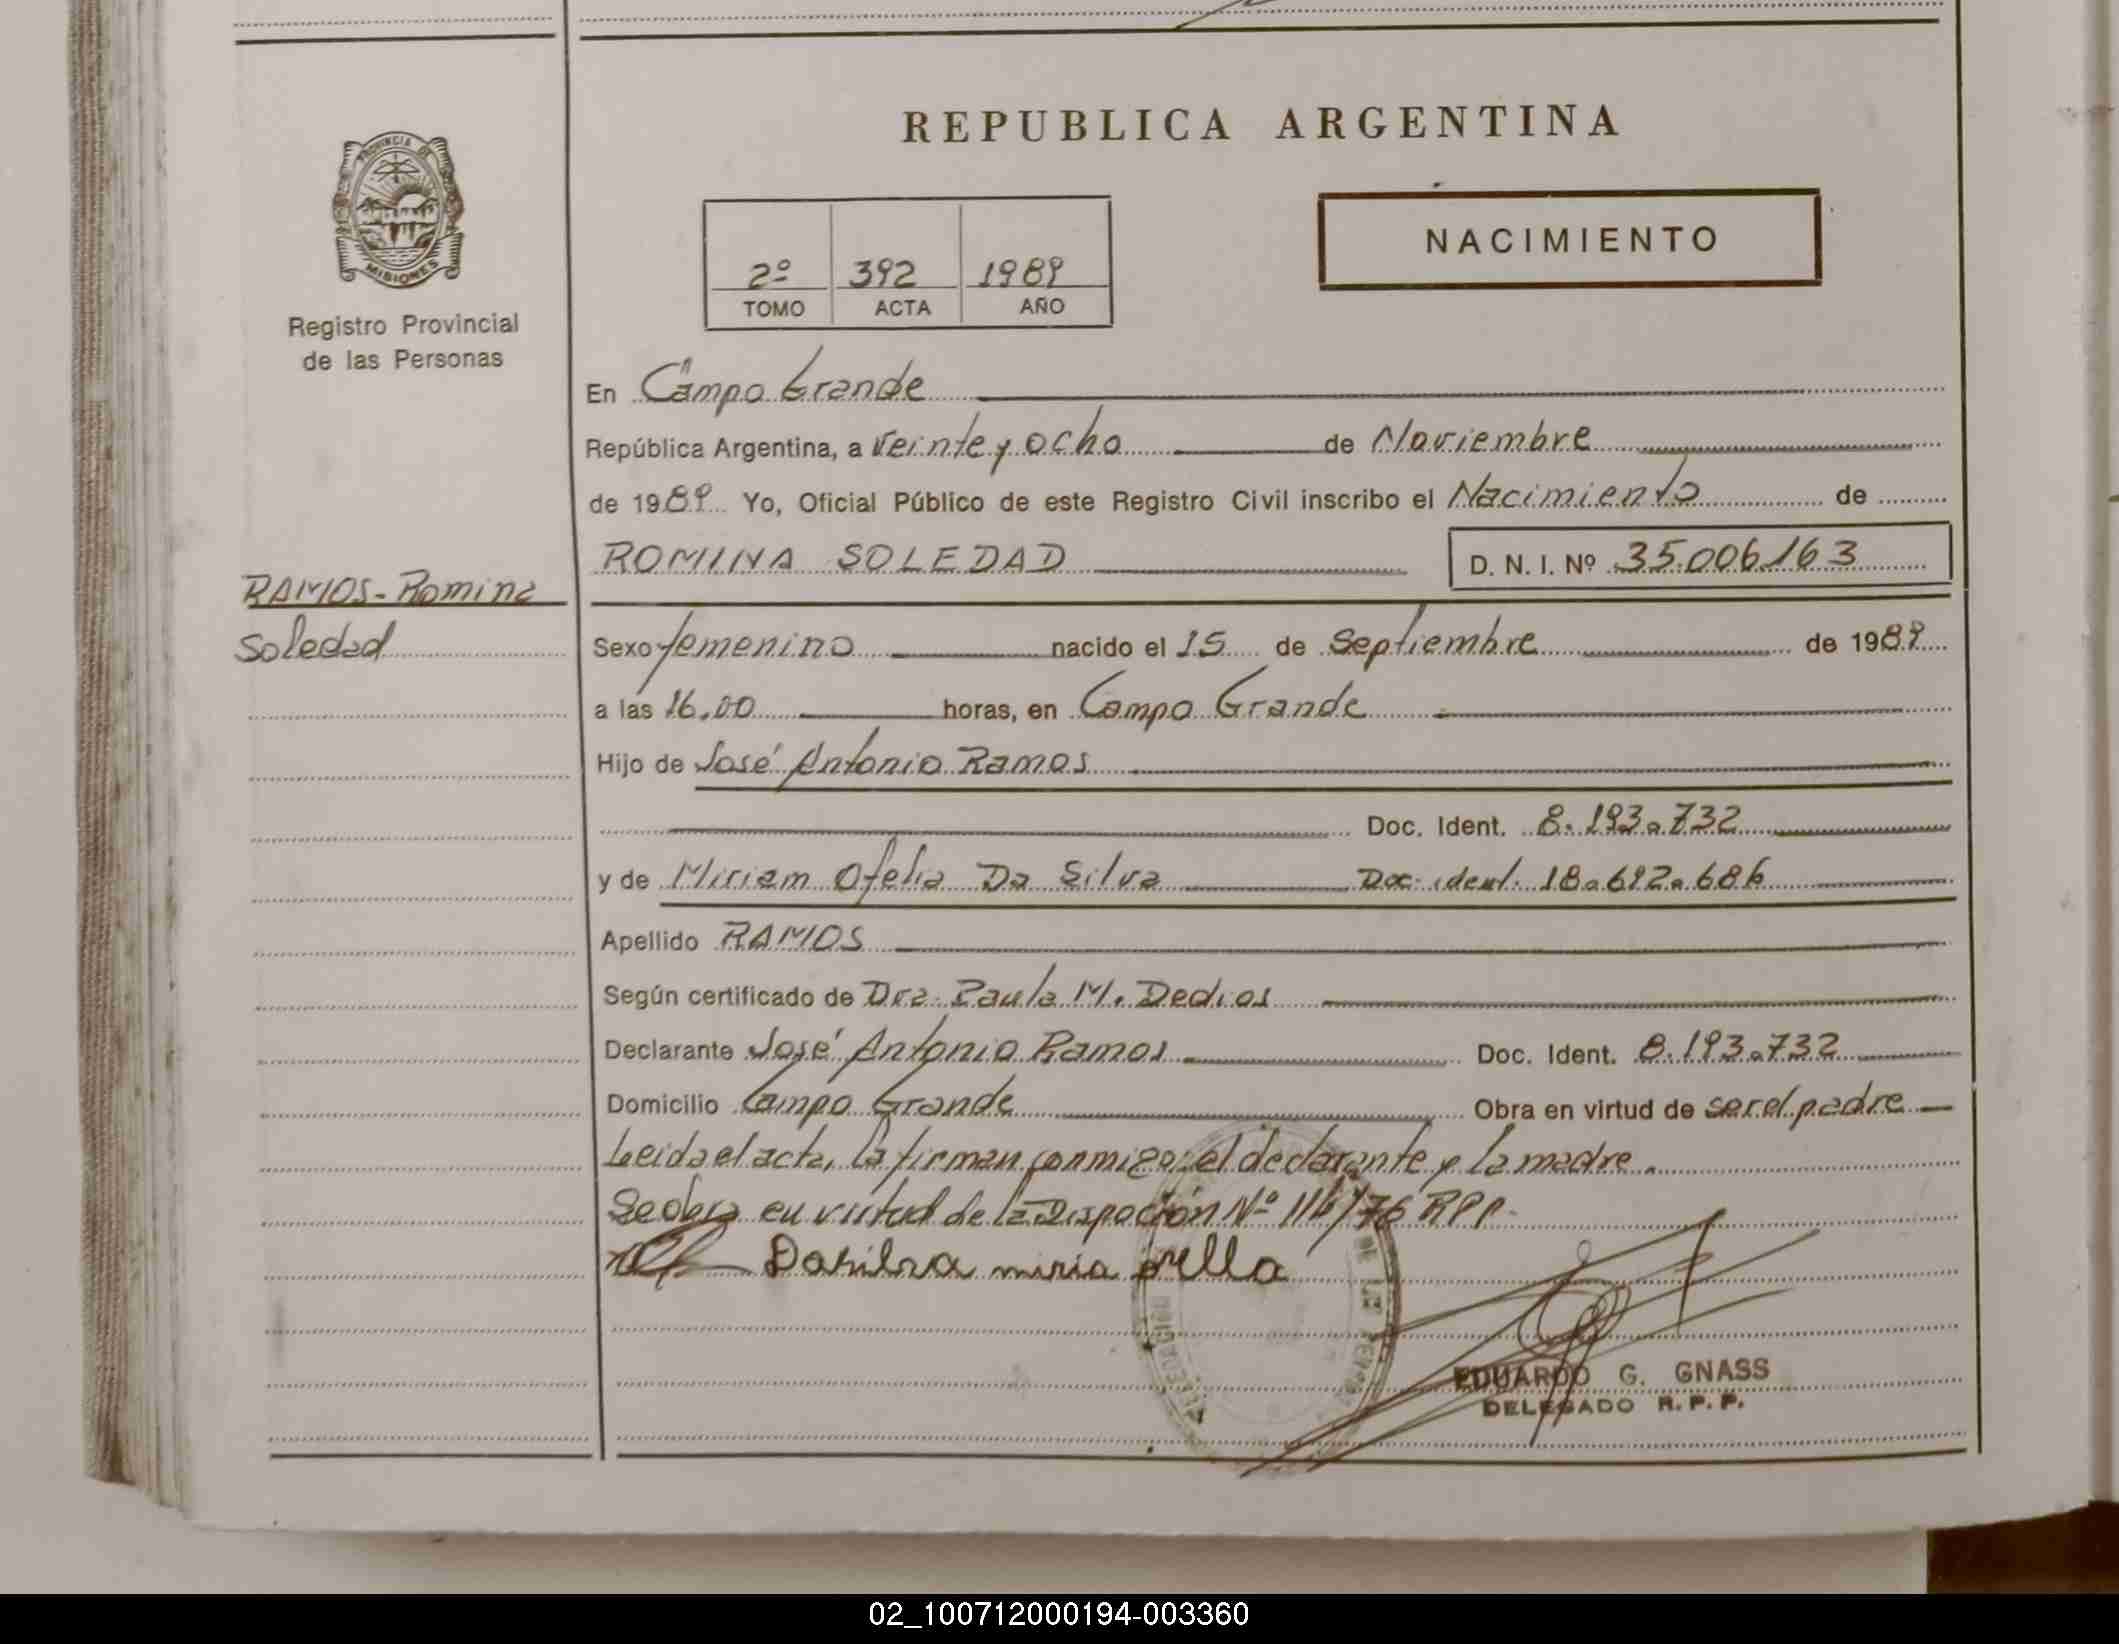 REPUBLICA ARGENTINA
PROVINCIA DE
MISIONES
Registro Provincial
de las Personas
2º 392 1989
TOMO ACTA AÑO
NACIMIENTO
En Campo Grande
República Argentina, a veinte y ocho de Noviembre
de 1989 Yo, Oficial Público de este Registro Civil inscribo el Nacimiento de
ROMINA SOLEDAD D. N. I. Nº 35.006.163
RAMOS - Romina
Soledad
Sexo femenino nacido el 15 de Septiembre de 1989
a las 16.00 horas, en Campo Grande
Hijo de José Antonio Ramos
Doc. Ident. 8.193.732
y de Miriam Ofelia Da Silva Doc. ident. 18.692.686
Apellido RAMOS
Según certificado de Dra. Paula M. Dedios
Declarante José Antonio Ramos Doc. Ident. 8.193.732
Domicilio Campo Grande Obra en virtud de ser el padre
Leida el acta, la firman conmigo: el declarante y la madre.
Se obra en virtud de la Disposción Nº 116/76 RPP.
Dasilva miria
EDUARDO G. GNASS
DELEGADO R. P. P.
02_100712000194-003360